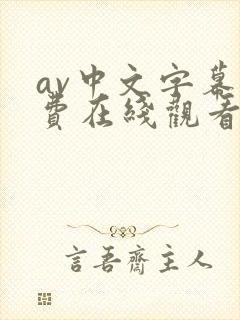 av中文字幕
費在綫觀看
言吾齋主人